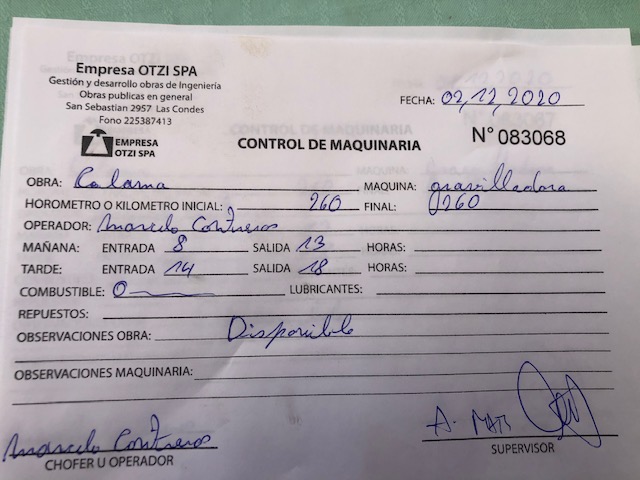 Empresa OTZI SPA
Gestión y desarrollo obras de Ingenieria
Obras publicas en general
San Sebastian 2957 Las Condes
Fono 225387413
EMPRESA
OTZI SPA
FECHA: 02,12,2020
CONTROL DE MAQUINARIA N° 083068
OBRA: Calama MAQUINA: gravilladora
HOROMETRO O KILOMETRO INICIAL: 260 FINAL: 260
OPERADOR: Marcelo Contreras
MAÑANA: ENTRADA 8 SALIDA 13 HORAS:
TARDE: ENTRADA 14 SALIDA 18 HORAS:
COMBUSTIBLE: 0 LUBRICANTES:
REPUESTOS:
OBSERVACIONES OBRA: Disponible
OBSERVACIONES MAQUINARIA:
Marcelo Contreras A.
CHOFER U OPERADOR SUPERVISOR